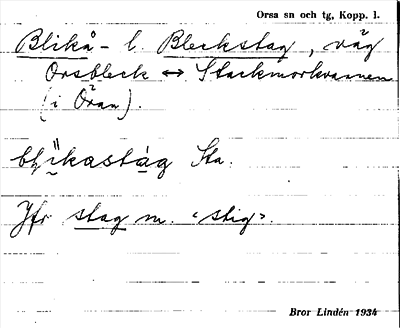 Orsa sn och tg, Kopp. l.
Blikå- l. Bleckstag, väg
Orsbleck ↔ Starkmorkvarnen
(i Öran).
Sta.
Jfr stag m. "stig".
Bror Lindén 1934